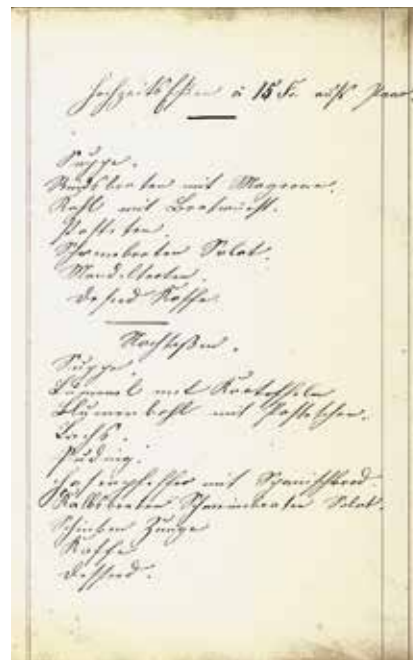 Hochzeitsessen à 15 Fr. aufs Paar.
Suppe.
Rindsbraten mit Magrone.
Kohl mit Bratwürst.
Pasteten.
Schweinebraten Salat.
Mandeltorten.
Desserd Kaffe
Nachtessen.
Suppe.
Lummel mit Kartoffeln
Blumenkohl mit Pastetchen.
Lachs.
Pudnig.
Hasenpfeffer mit Spanischbrod
Kalbsbraten Schweinbraten Salat.
Schinken Zunge
Kaffe
Desserd.